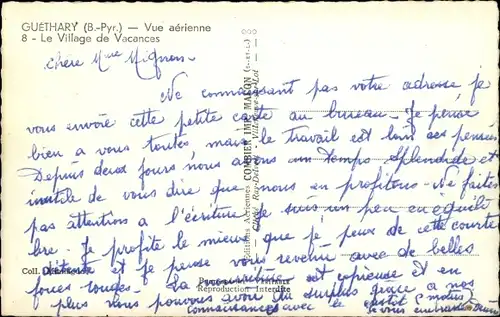 GUÉTHARY (B.-Pyr.) — Vue aérienne
8 - Le Village de Vacances
Chère Mme Mignon -
Ne connaissant pas votre adresse, je
vous envoie cette petite carte au bureau - Je pense
bien a vous toutes, mais le travail est loin de ses pensées
Depuis deux jours nous avons un Temps splendide et
inutile de vous dire que nous en profitons - Ne faites
pas attention a l'écriture je suis un peu en équili
bre - Je profite le mieux que je peux de cette courte
et je pense vous revenir avec de belles
joues rouges - La nourriture est copieuse et en
plus nous pouvons avoir du surplus grâce a nos
connaissances avec le
Je vous embrasse
Editions Aériennes COMBIER IMP. MACON (S.-et-L.)
Coll.
Reproduction Interdite